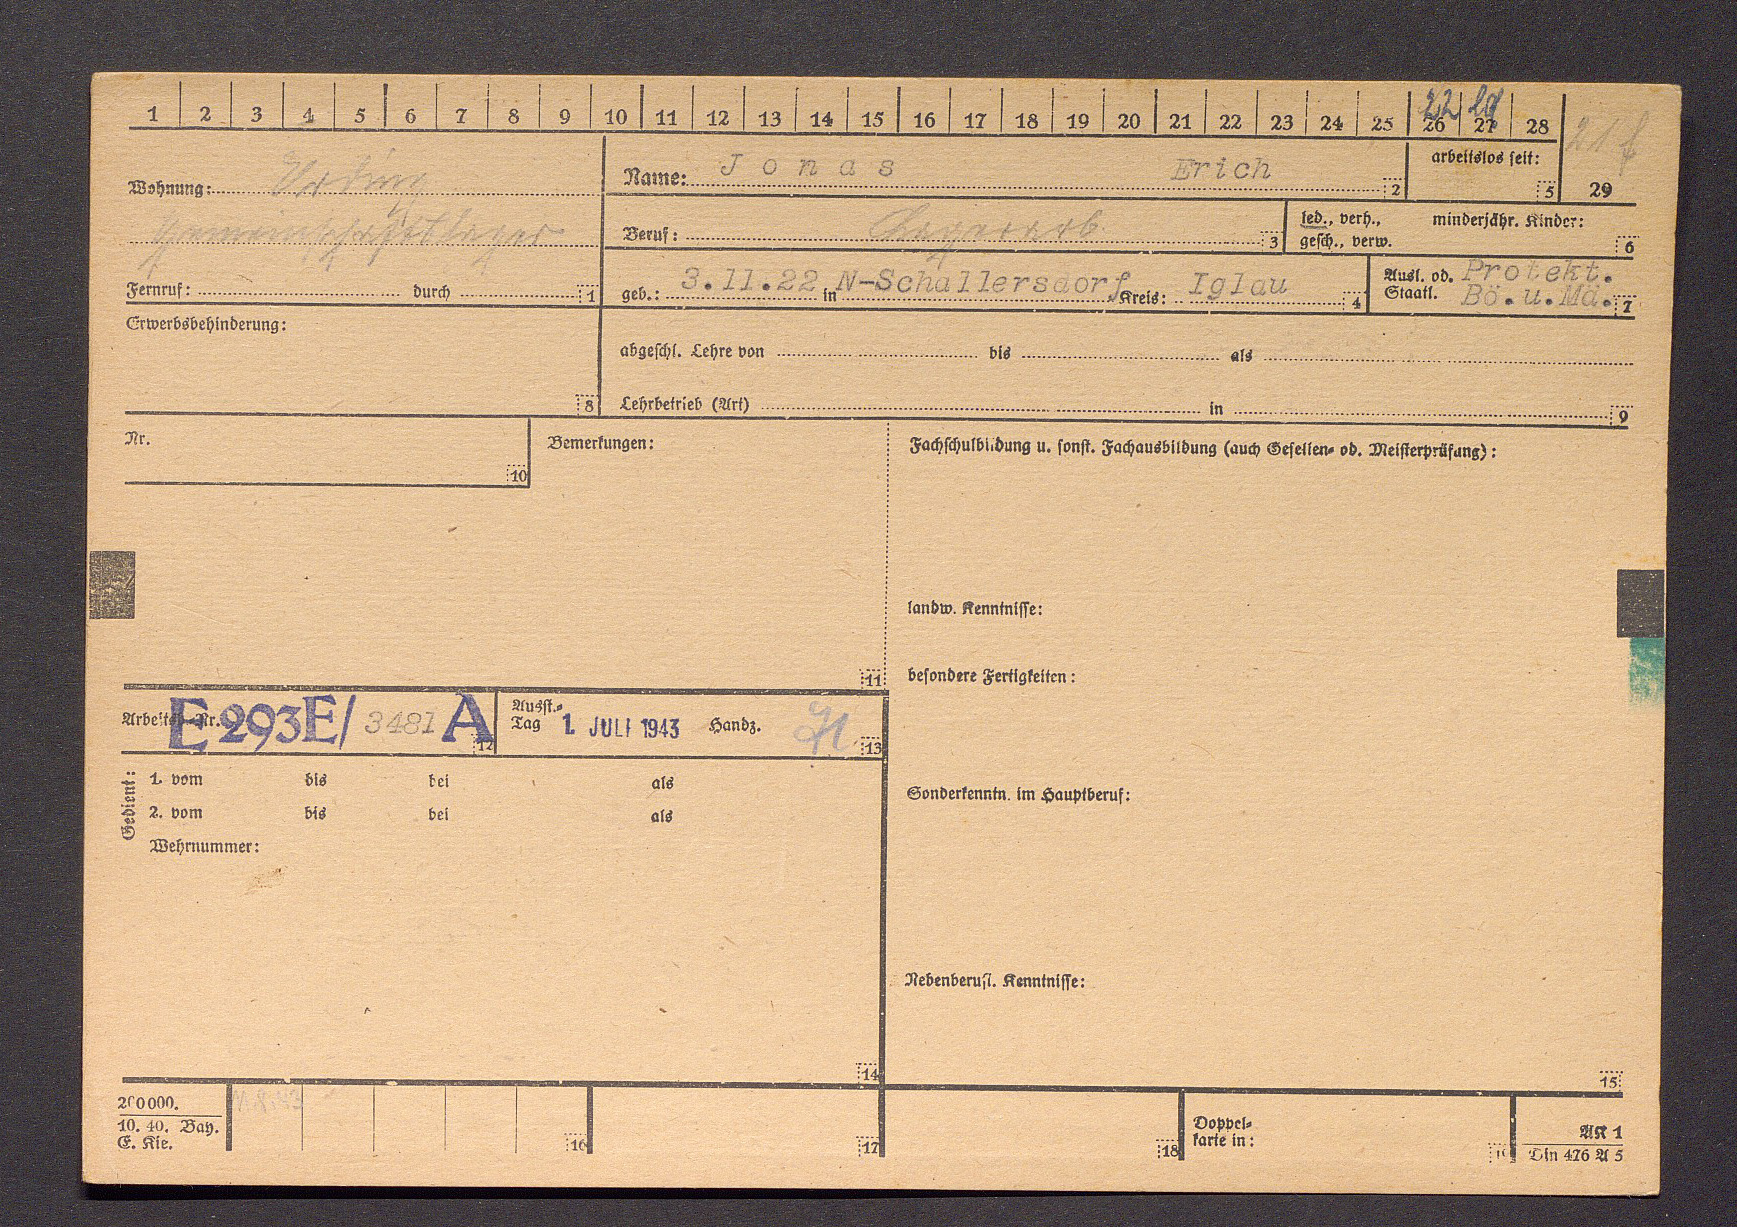 1 2 3 4 5 6 7 8 9 10 11 12 13 14 15 16 17 18 19 20 21 22 23 24 25 26 27 28
22
29
arbeitslos seit:
5
Wohnung: Erding
Gemeinschaftslager
Fernruf: durch 1
Name: Jonas Erich 2
Beruf: Lagerarb. 3
led., verh., gesch., verw.
minderjähr. Kinder:
6
geb.: 3.11.22 in N-Schallersdorf, Kreis: Iglau 4
Ausl. od. Staatl. Protekt. Bö.u.Mä. 7
Erwerbsbehinderung:
8
abgeschl. Lehre von bis als
Lehrbetrieb (Art) in 9
Nr.
10
Bemerkungen:
11
Fachschulbildung u. sonst. Fachausbildung (auch Gesellen- od. Meisterprüfung):
landw. Kenntnisse:
besondere Fertigkeiten:
Sonderkenntn. im Hauptberuf:
Nebenberufl. Kenntnisse:
15
Arbeitsb.-Nr. E 293E/ 3481 A 12
Ausst.-Tag 1. JULI 1943 Handz. 13
Gedient:
1. vom bis bei als
2. vom bis bei als
Wehrnummer:
14
200000.
10. 40. Bay.
E. Kie.
16
17
18
Doppel-
karte in:
19
AK 1
Din 476 A 5